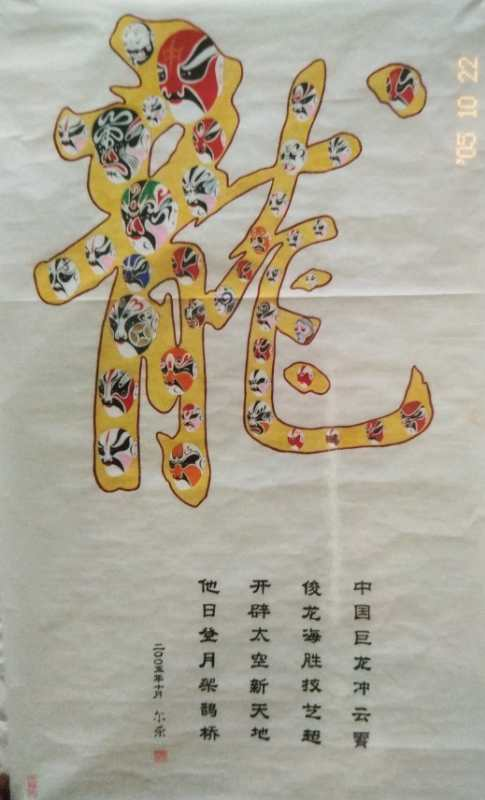 龍
中国巨龙冲云霄
俊龙海胜技艺超
开辟太空新天地
他日登月架鹊桥
二〇〇五年十月
'05 10 22